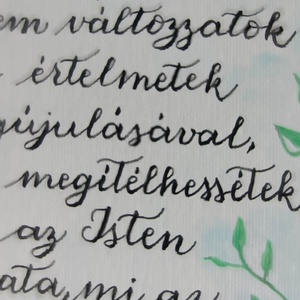 em változzatok
értelmetek
gújulásával,
megítélhessétek
az Isten
ata, mi az